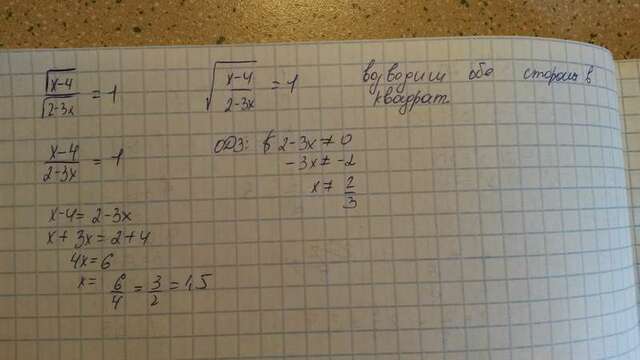 √(x-4)/√(2-3x) = 1
√((x-4)/(2-3x)) = 1
возводим обе стороны в
квадрат
(x-4)/(2-3x) = 1
ОДЗ: 2-3x ≠ 0
-3x ≠ -2
x ≠ 2/3
x-4 = 2-3x
x+3x = 2+4
4x = 6
x = 6/4 = 3/2 = 1,5